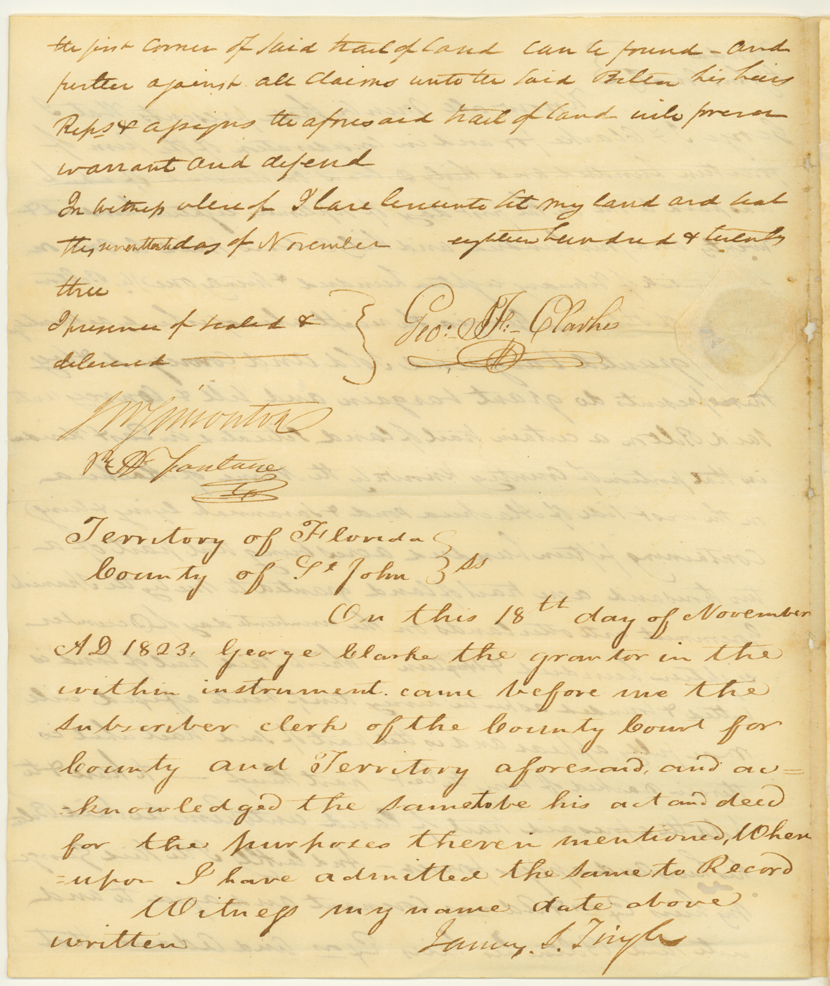 the first corner of said tract of land can be found - and
further against all claims unto the said Belton his heirs
Reps & assigns the aforesaid tract of land will forever
warrant and defend
In witness whereof I have hereunto set my hand and seal
this seventeenth day of November eighteen hundred & twenty
three
I presence of sealed &
delivered
Geo: J. F. Clarke
J W Simonton
Territory of Florida
County of St John } ss
On this 18th day of November
AD 1823, George Clarke the grantor in the
within instrument. came before me the
subscriber clerk of the County Court for
County and Territory aforesaid, and ac=
=knowledged the same to be his act and deed
for the purposes therein mentioned, Where
=upon I have admitted the same to Record
Witness my name date above
written James S. Tingle